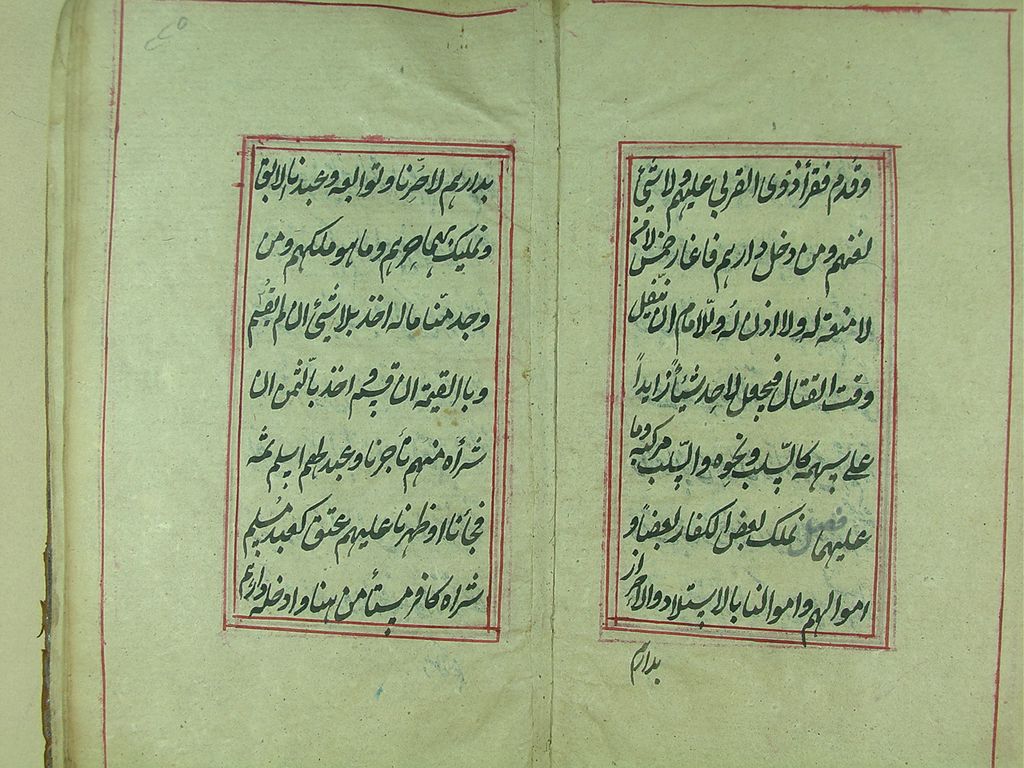 وقدم فقرأ ذوى القربى عليهم ولا شئ
لغنهم ومن دخل دارهم فاغار خمس لا من
لا منعة له ولا اذن له وللامام ان ينفل
وقت القتال فيجعل لاحد شيئاً زايداً
على سهمه كالسلب ونحوه والسلب مركبه وما
عليهما فصل نملك بعض الكفار بعضا و
اموالهم واموالنا بالاستيلاد والاحراز
بدارهم
بدارهم لا حرنا ولو توابعه وعبدنا الابقا
ونملك بهما حرهم وما هو ملكهم ومن
وجد منا ماله اخذ بلا شئ ان لم يقسم
وبا القيمة ان قسم اخذ بالثمن ان
شراه منهم تاجرنا وعبد لهم اسلم ثمه
فجأنا او ظهرنا عليهم عتق كعبد مسلم
شراه كافر مستأمن هنا وادخله دارهم